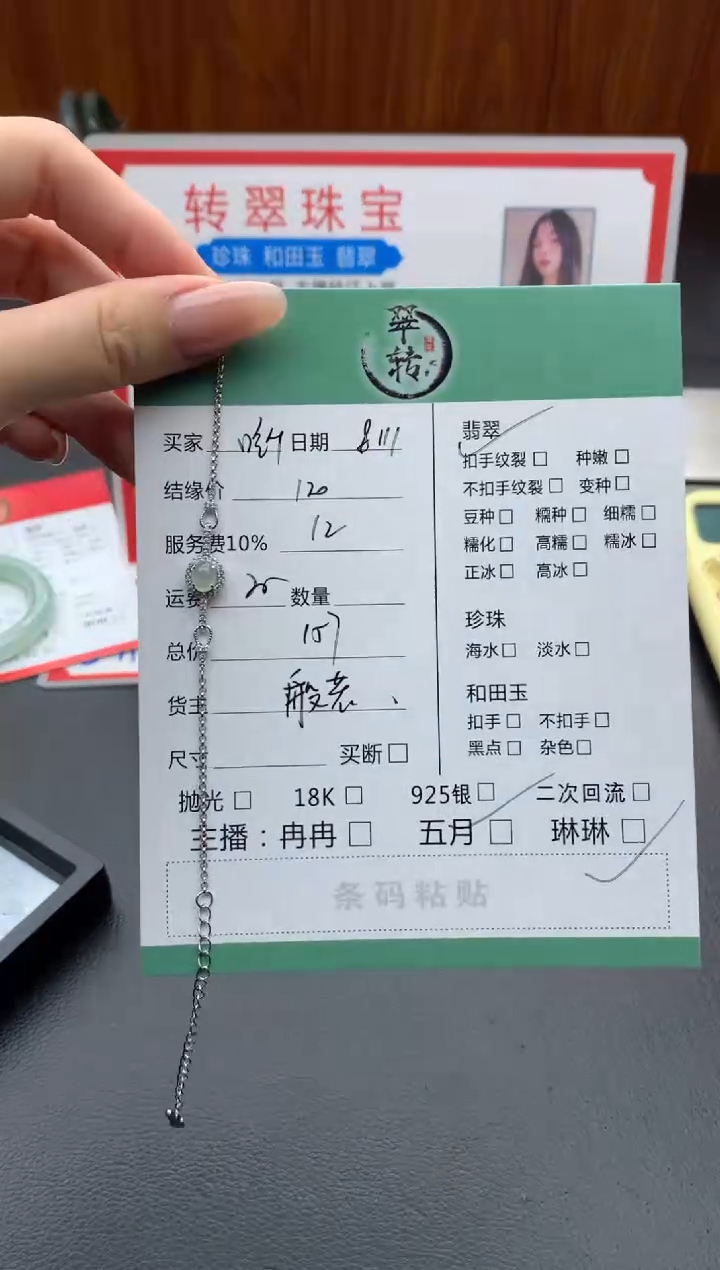 转翠珠宝
珍珠 和田玉 翡翠
翠
转
买家 日期
结缘价 120
服务费10% 12
运费 25 数量
总价 157
货主 般若
尺寸 买断□
翡翠
扣手纹裂□ 种嫩□
不扣手纹裂□ 变种□
豆种□ 糯种□ 细糯□
糯化□ 高糯□ 糯冰□
正冰□ 高冰□
珍珠
海水□ 淡水□
和田玉
扣手□ 不扣手□
黑点□ 杂色□
抛光□ 18K□ 925银□ 二次回流□
主播：冉冉□ 五月□ 琳琳□
条码粘贴